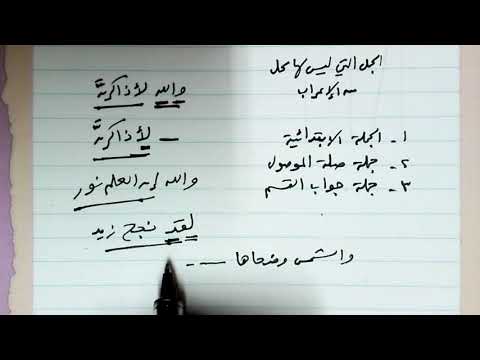 الجمل التي ليس لها محل
من الإعراب
١- الجملة الابتدائية
٢- جملة صلة الموصول
٣- جملة جواب القسم
والله لأذاكرنَّ
ـــ لأذاكرنَّ
والله إن العلم نور
لقد نجح زيد
والشمس وضحاها ـــ ـ ـ